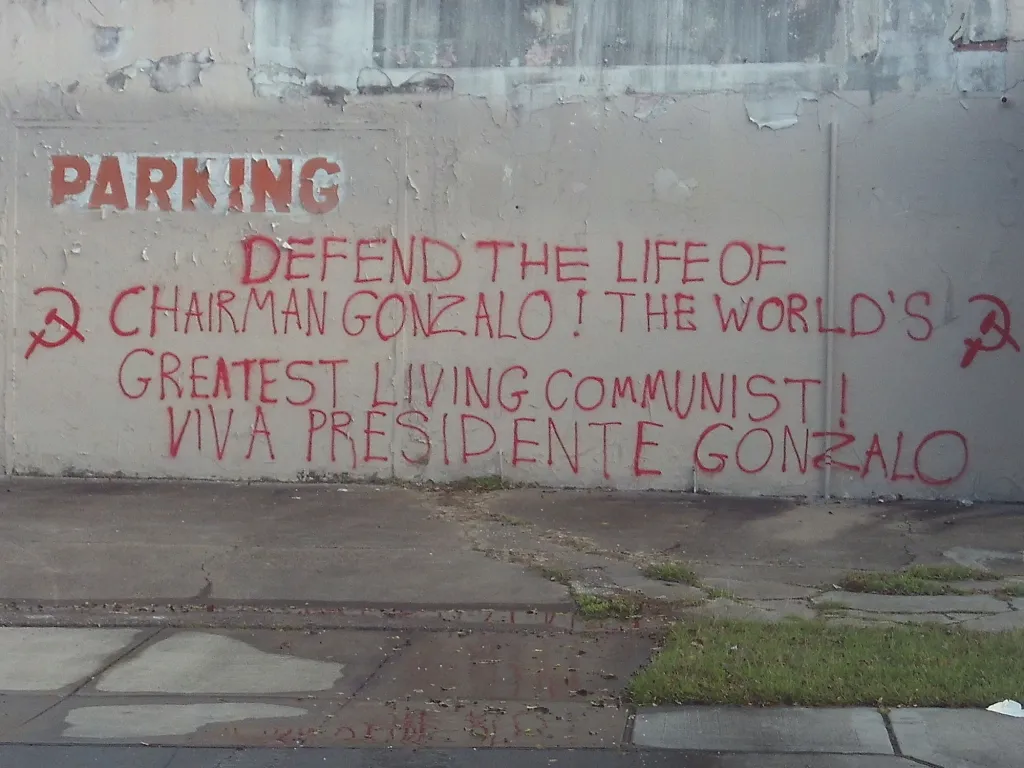 PARKING
DEFEND THE LIFE OF
CHAIRMAN GONZALO! THE WORLD'S
GREATEST LIVING COMMUNIST!
VIVA PRESIDENTE GONZALO